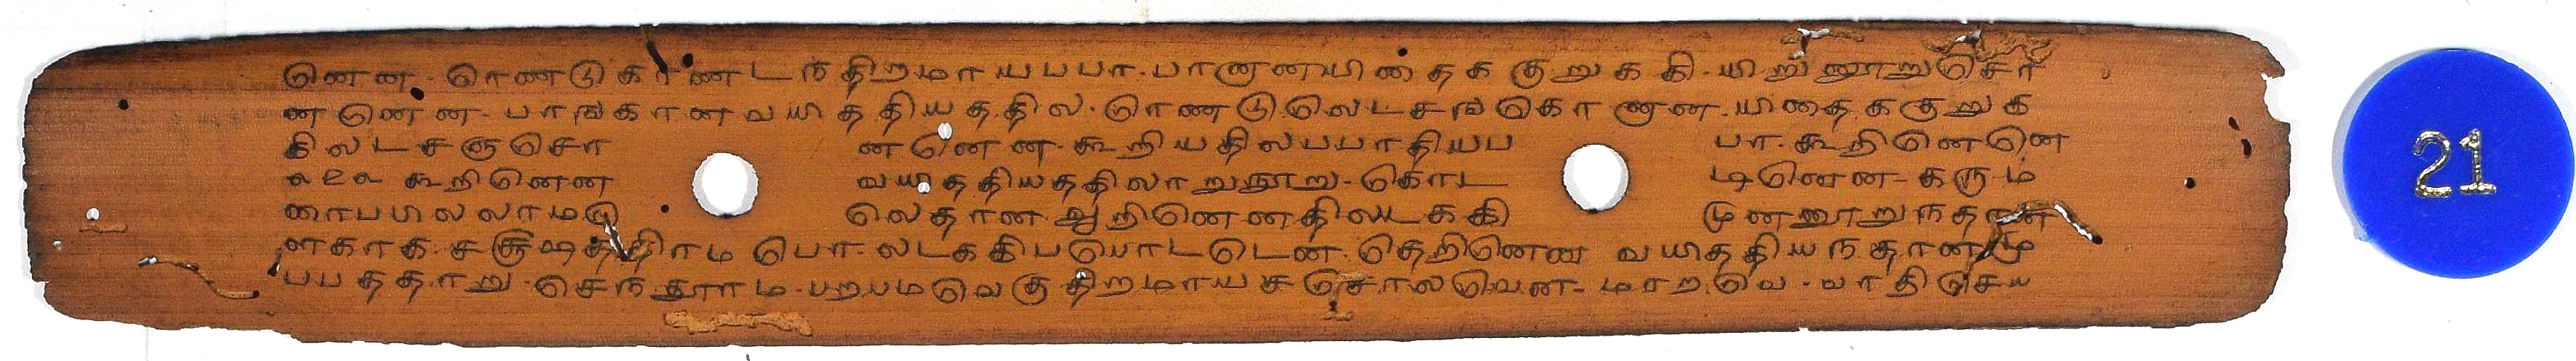 னென - ரெண்டு காண்டந் திறமாய பபா - பானூனயிதைக குறுககி - யிறுனூறுசொ
னனென - பாங்கான வயித்தியத்தில - ரெண்டு லெடசஙகொணன - யிதைக குறுக
கிலடசஞசொ னனென - கூறியதிலபபாதியப பா - கூறினெனெ
கூறினென வயித்தியததிலாறுநூறு - கொட டினென - கரும
காபபிலலாமலெ லெதான ஆறினெனதிலடககி முனனூறுநதான
ளகாக - சூஷத்திரம பொ - லடககிபபொடடென - தெறினென வயிததியநதானமு
பபததாறு - செந்தூரம - பறபமவெகு திறமாயச சொலவென - மாறவெ - வாதிசெய
21